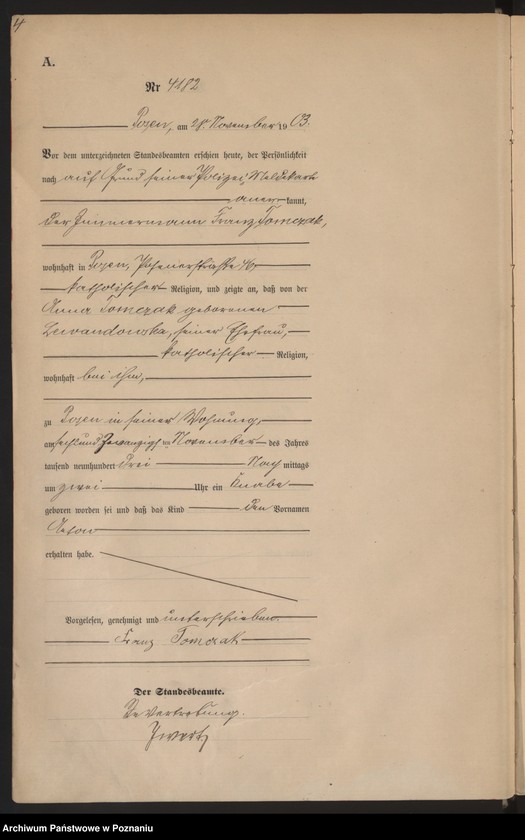 4
A.
Nr 4182
Posen, am 28. November 1903.
Vor dem unterzeichneten Standesbeamten erschien heute, der Persönlichkeit
nach auf Grund seiner Polizei Meldekarte
aner kannt,
der Zimmermann Franz Tomczak,
wohnhaft in Posen,
katholischer Religion, und zeigte an, daß von der
Anna Tomczak geborenen
Lewandowska, seiner Ehefrau,
katholischer Religion,
wohnhaft bei ihm,
zu Posen in seiner Wohnung,
am sechsundzwanzigsten November des Jahres
tausend neunhundert drei Nach mittags
um zwei Uhr ein Knabe
geboren worden sei und daß das Kind den Vornamen
erhalten habe.
Vorgelesen, genehmigt und unterschrieben.
Franz Tomczak
Der Standesbeamte.
In Vertretung.
Archiwum Państwowe w Poznaniu